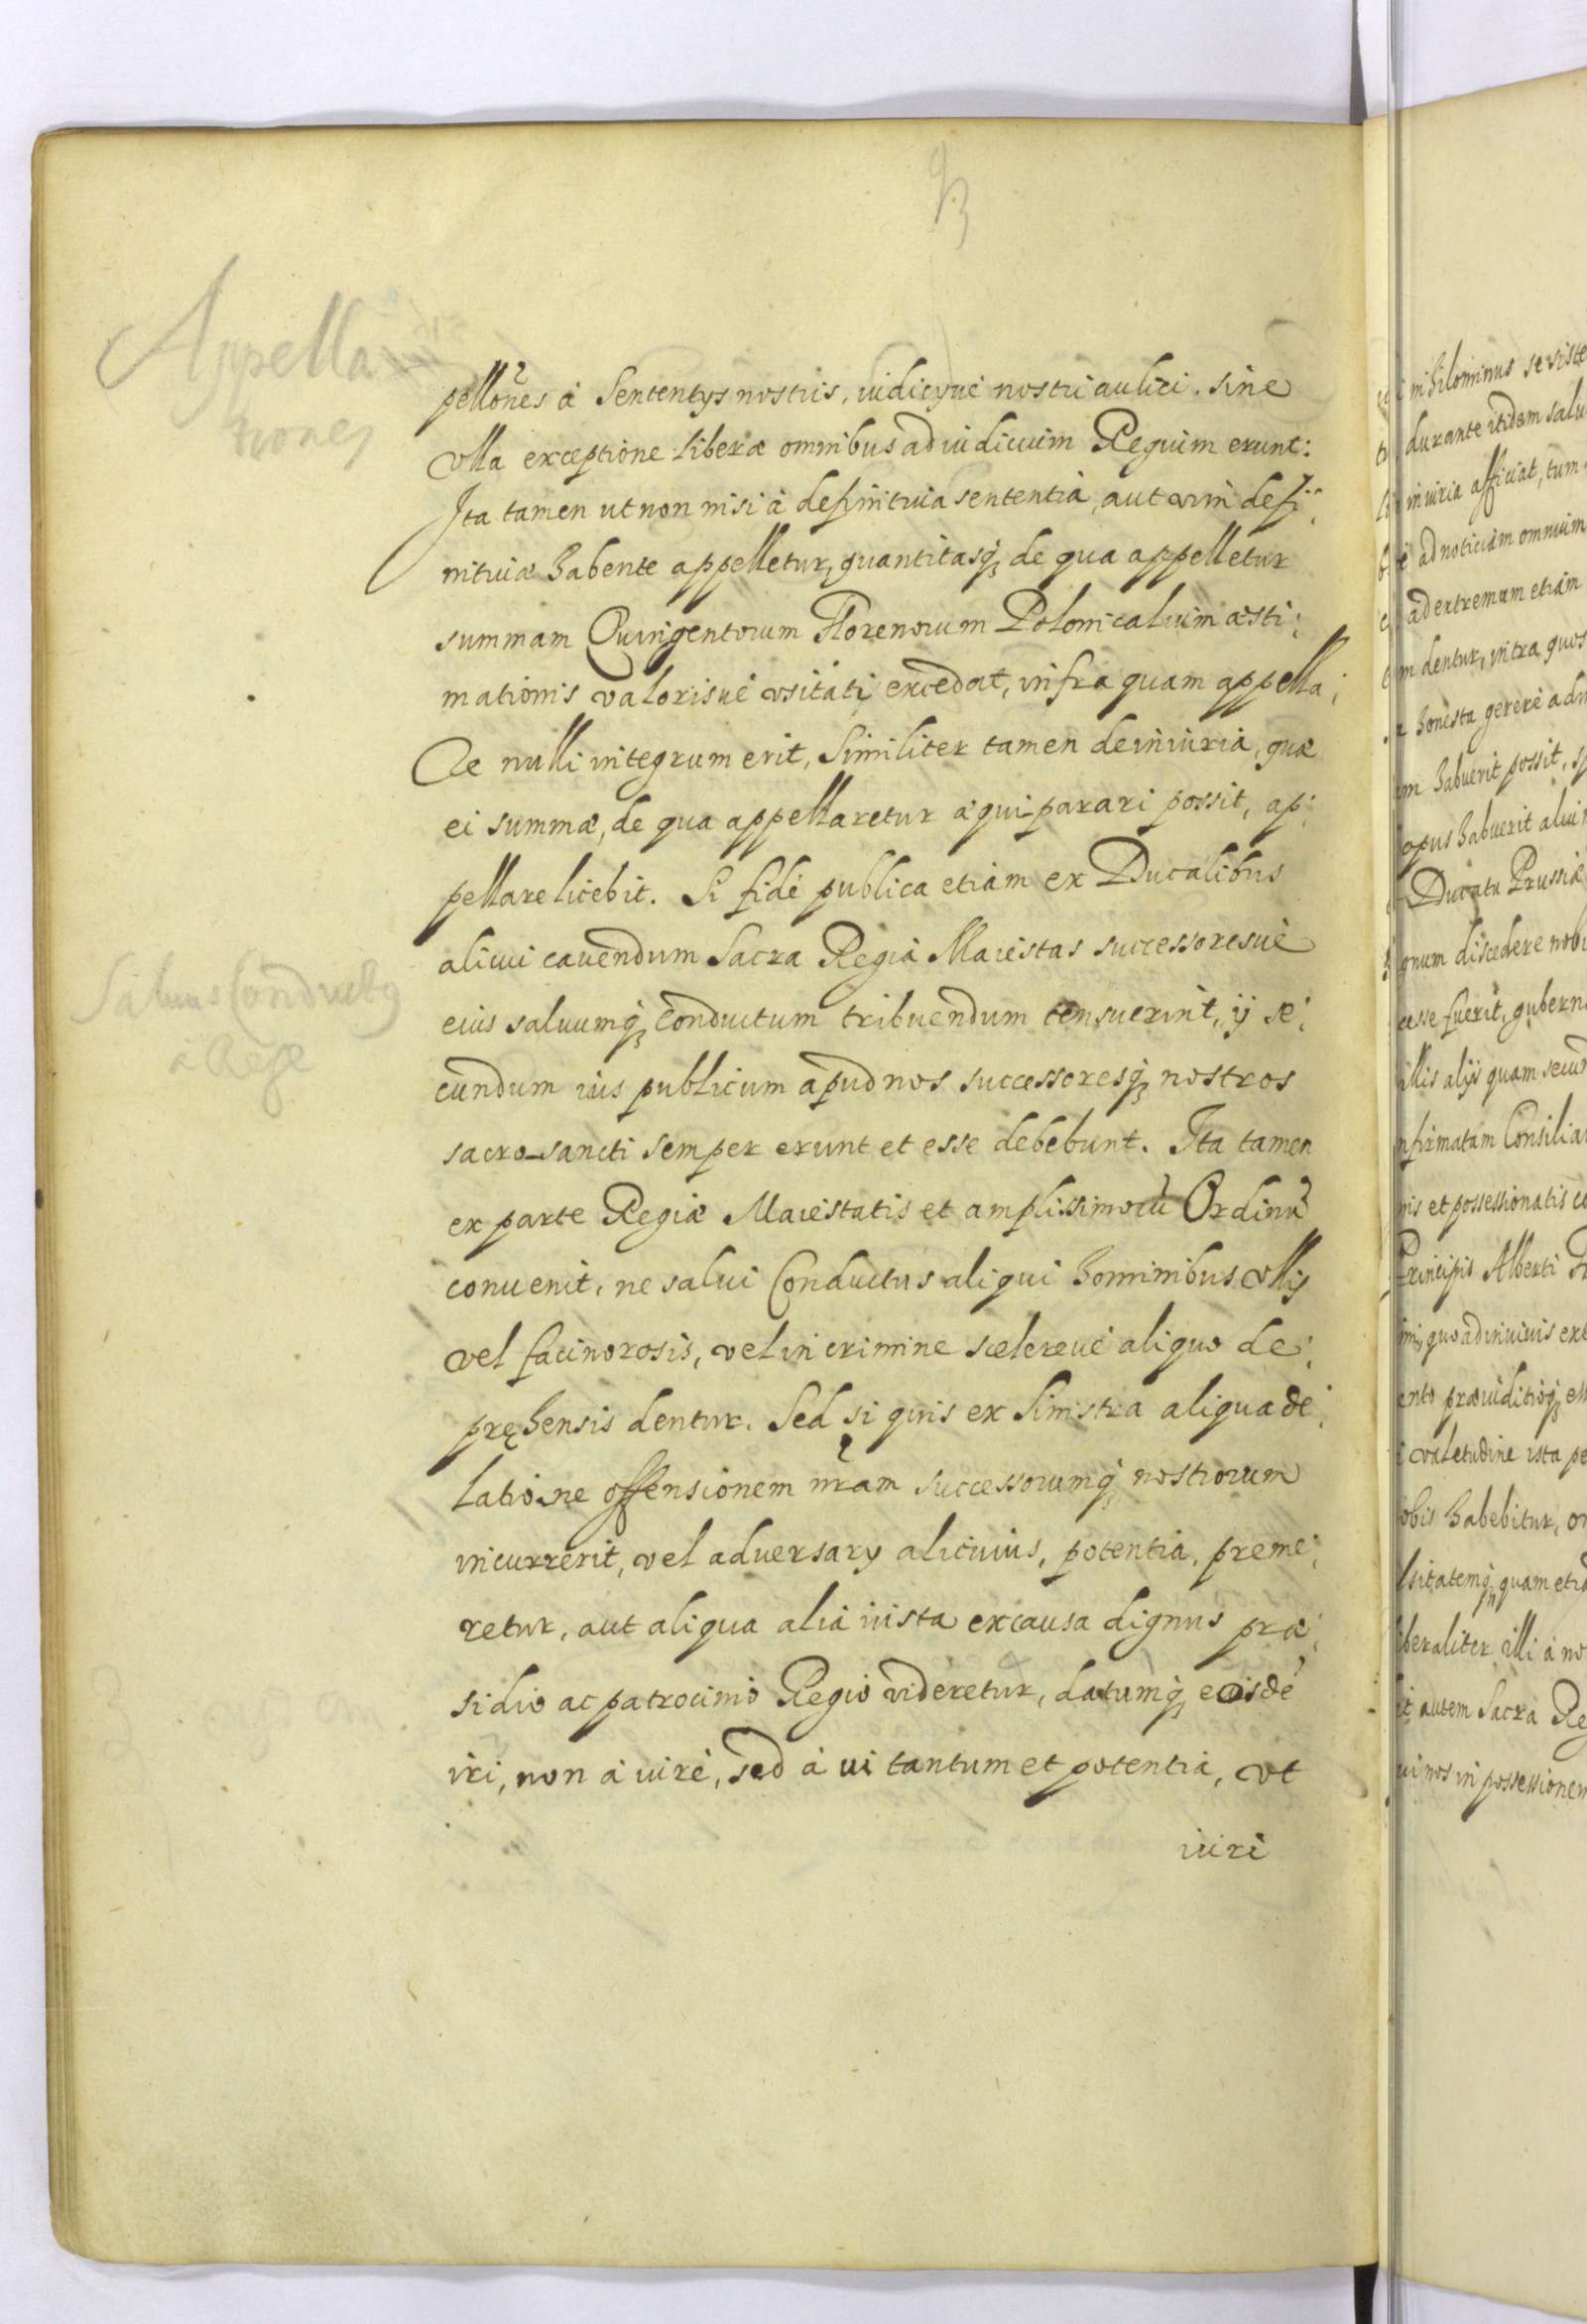 Appella
tiones
pellões à Sententijs nostris, iudicijuè nostri aulici. sine
vlla exceptione liberæ omnibus ad iudicium Regium erunt:
Ita tamen ut non nisi à definitiua sententia, aut vim defi:
nitiuæ habente appelletur, quantitasq; de qua appelletur
summam Quingentorum Florenorum Polonicalium æsti:
mationis valorisuè vsitati excedat, infra quam appella:
re nulli integrum erit, Similiter tamen de iniuria, quæ
ei summæ, de qua appellaretur æquiparari possit, ap:
pellare licebit. Si fidè publica etiam ex Ducalibus
alicui cauendum Sacra Regia Maiestas successoresuè
Saluus Conductus
à Rege
eius saluumq; conductum tribuendum censuerint, ij se:
cundum ius publicum apud nos successoresq; nostros
sacro-sancti semper erunt et esse debebunt. Ita tamen
ex parte Regiæ Maiestatis et amplissimorũ Ordinũ
conuenit, ne salui Conductus aliqui hominibus vllis
vel facinorosis, vel in crimine scelereuè aliquo de:
pręhensis dentur. Sed si quis ex Sinistra aliqua de:
latione offensionem nr̃am successorumq; nostrorum
incurrerit, vel aduersarij alicuius, potentia, preme:
retur, aut aliqua alia iusta ex causa dignus præ:
sidio ac patrocinio Regio videretur, datumq; eisdẽ
iri, non à iurè, sed à ui tantum et potentia, vt
iuri
nihilominus se siste
durante itidem salu
iniuria afficiat, tum
ad noticiam omnium
ad extremum etiam
dentur, intra quos
honesta gerere adm
habuerit possit, sp
opus habuerit alui
Ducatu Prussiæ
gnum discedere nobi
cesse fuerit, guberna
illis alijs quam secun
nfirmatam Consilia
nis et possessionatis co
Principis Alberti
quo ad inuiuis
ento præuiditioq;
valetudine ista pe
obis habebitur, or
sitatemq; quam etia
iberaliter illi à no
it autem Sacra Re
ui nos in possessionem